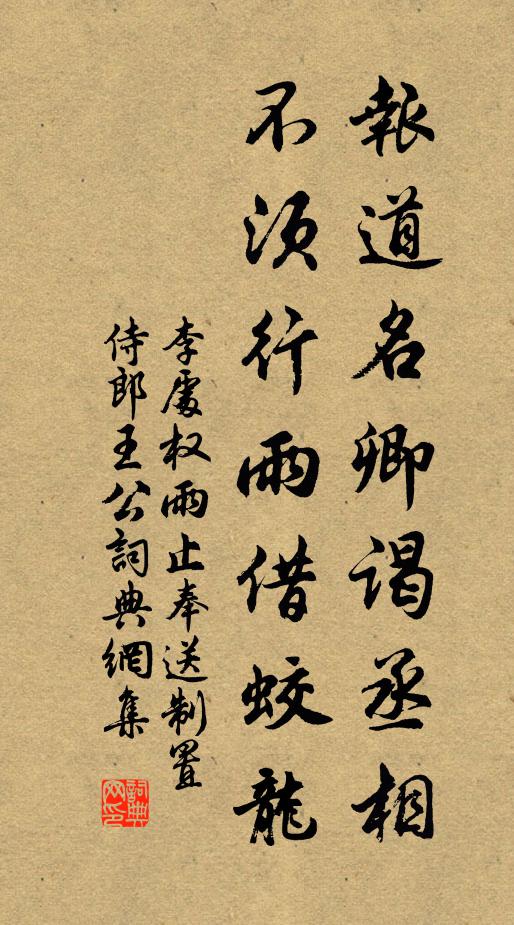 報道名卿謁丞相
不須行雨借蛟龍
李處权雨止奉送制置
侍郎王公詞典網集
詞典
网印